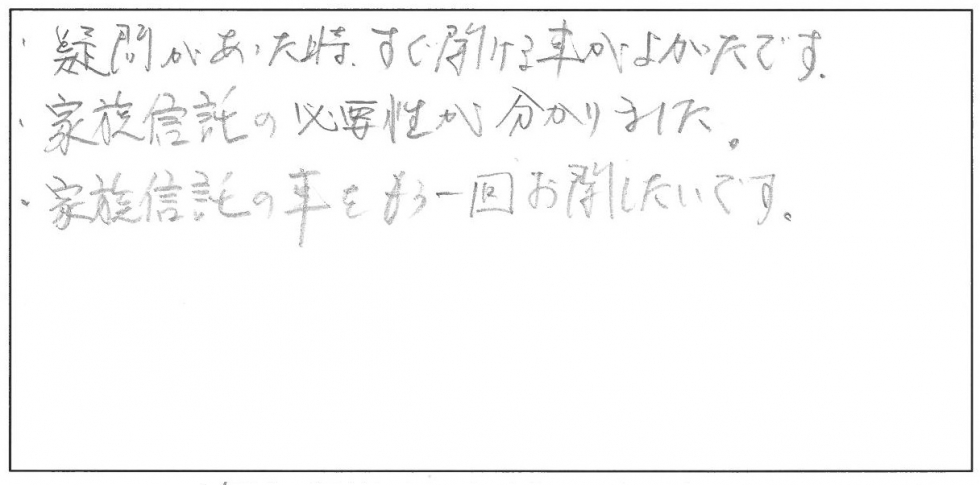 ・疑問があった時、すぐ聞ける事がよかったです。
・家族信託の必要性が分かりました。
・家族信託の事をもう一回お聞したいです。